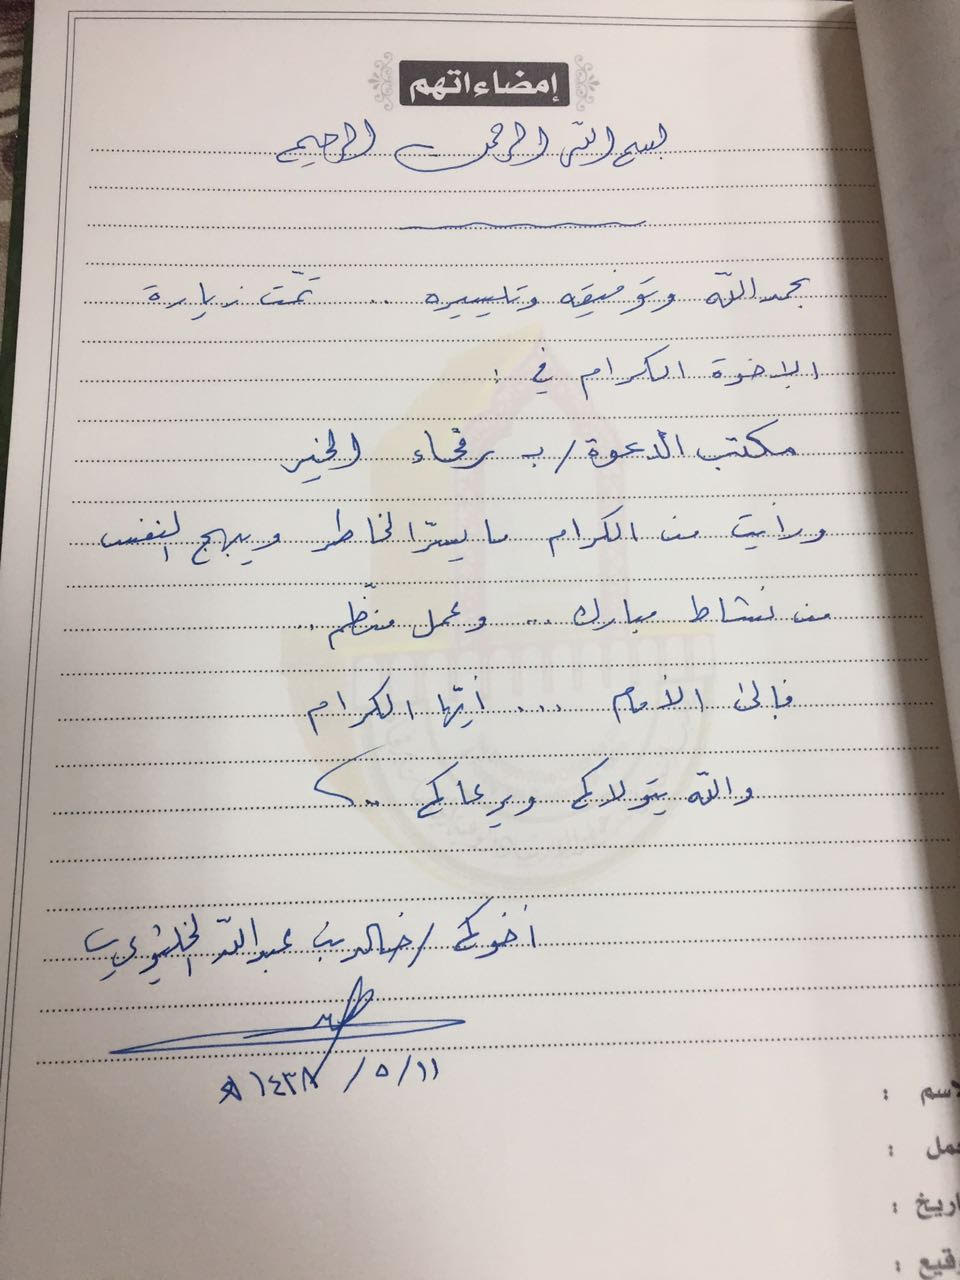 إمضاءاتهم
بسم الله الرحمن الرحيم
بحمد الله وتوفيقه وتيسيره .. تمّت زيارة
الإخوة الكرام في :
مكتب الدعوة / بـ رفحاء الخير
ورأيت من الكرام ما يسرّ الخاطر ويبهج النفس
من نشاط مبارك ... وعمل منظّم ..
فإلى الأمام ... أيّها الكرام
والله يتولاكم ويرعاكم ..
أخوكم / خالد بن عبدالله الخليوي
١١ / ٥ / ١٤٣٨ هـ
الاسم :
العمل :
التاريخ :
التوقيع :